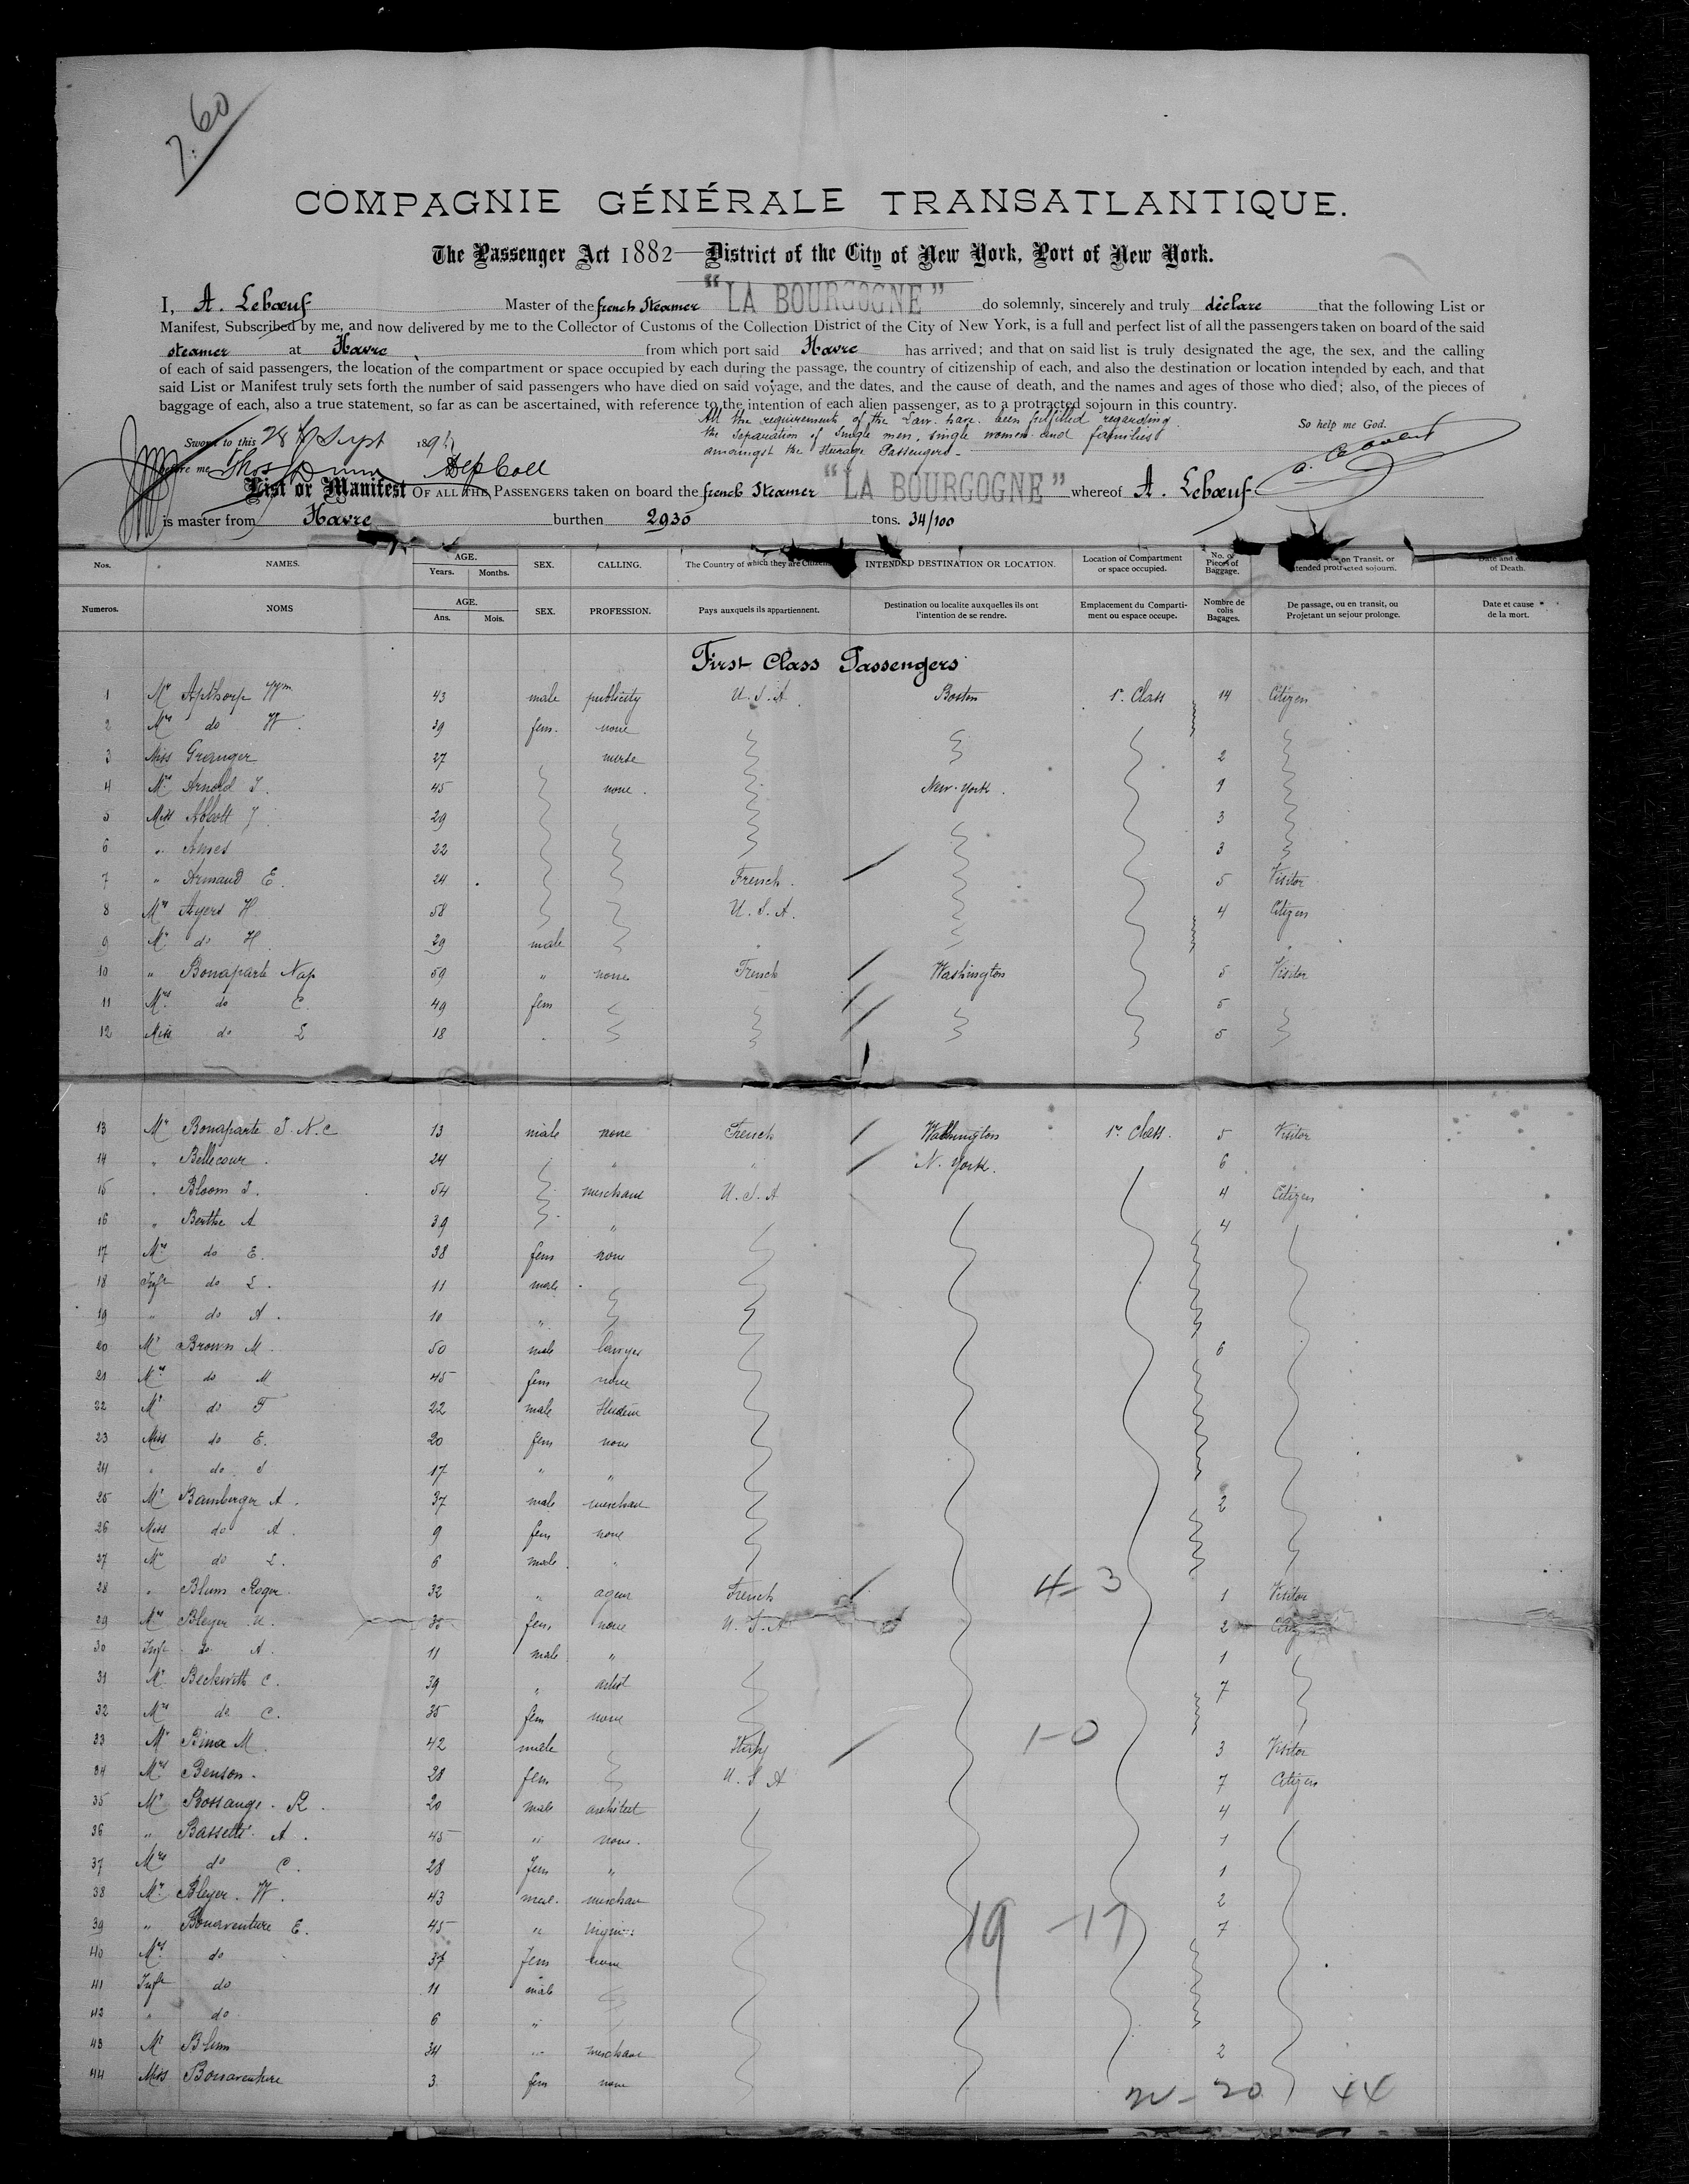 7.60
COMPAGNIE GÉNÉRALE TRANSATLANTIQUE.
The Passenger Act 1882—District of the City of New York, Port of New York.
I, A. Lebœuf Master of the french Steamer "LA BOURGOGNE" do solemnly, sincerely and truly declare that the following List or
Manifest, Subscribed by me, and now delivered by me to the Collector of Customs of the Collection District of the City of New York, is a full and perfect list of all the passengers taken on board of the said
steamer at Havre from which port said Havre has arrived; and that on said list is truly designated the age, the sex, and the calling
of each of said passengers, the location of the compartment or space occupied by each during the passage, the country of citizenship of each, and also the destination or location intended by each, and that
said List or Manifest truly sets forth the number of said passengers who have died on said voyage, and the dates, and the cause of death, and the names and ages of those who died; also, of the pieces of
baggage of each, also a true statement, so far as can be ascertained, with reference to the intention of each alien passenger, as to a protracted sojourn in this country.
All the requirements of the Law have been fulfilled regarding
the separation of single men, single women and families
amongst the steerage Passengers.
So help me God.
Sworn to this 28 Sept 189
before me Thos Dunn Dep Coll
List or Manifest OF ALL THE PASSENGERS taken on board the french Steamer "LA BOURGOGNE" whereof A. Lebœuf
is master from Havre burthen 2930 tons. 34/100
Nos. NAMES. AGE. Years. Months. SEX. CALLING. The Country of which they are Citizens INTENDED DESTINATION OR LOCATION. Location of Compartment or space occupied. No. of Pieces of Baggage. on Transit. or intended protracted sojourn. Date and of Death.
Numeros. NOMS AGE. Ans. Mois. SEX. PROFESSION. Pays auxquels ils appartiennent. Destination ou localite auxquelles ils ont l'intention de se rendre. Emplacement du Compartiment ou espace occupe. Nombre de colis Bagages. De passage, ou en transit, ou Projetant un sejour prolonge. Date et cause de la mort.
First Class Passengers
1 Mr Apthorp Wm 43 male publicity U.S.A. Boston 1r. Class 14 Citizen
2 Mrs do W. 39 fem. none
3 Miss Granger 27 nurse 2
4 Mrs Arnold J. 45 none. New-York. 9
5 Miss Abbott J 29 3
6 " Ames 22 3
7 " Armand E. 24 French. 5 Visitor
8 Mrs Ayers H. 58 U.S.A. 4 Citizen
9 Mr do H. 29 male "
10 " Bonaparte Nap 59 " none French Washington 5 Visitor
11 Mrs do C. 49 fem 5
12 Miss do L 18 5
13 Mr Bonaparte J.N.C 13 male none French Washington 1r. Class. 5 Visitor
14 " Bellecour. 24 " " N. York. 6 "
15 " Bloom I. 54 merchant U.S.A 4 Citizen
16 " Berthe A 39 " 4
17 Mrs do E. 38 fem none
18 Inft do L. 11 male
19 " do A. 10 "
20 Mr Brown M. 50 male lawyer 6
21 Mrs do M 45 fem none
22 Mr do F 22 male Student
23 Miss do E. 20 fem none
24 " do J 17 " "
25 Mr Bamberger A. 37 male merchant 2
26 Miss do A. 9 fem none
27 Mr do L. 6 male "
28 " Blum Roger 32 " agent French 4-3 1 Visitor
29 Mrs Bleyer U. 35 fem none U.S.A 2 Citizen
30 Inft do A. 11 male " 1
31 Mr Beckwith C. 39 " artist 7
32 Mrs do C. 35 fem none
33 Mr Bina M. 42 male Italy 1-0 3 Visitor
34 Mrs Benson. 28 fem U.S.A 7 Citizen
35 Mr Bossange. R. 20 male architect 4
36 " Bassetti A. 45 " none. 1
37 Mrs do C. 28 fem " 1
38 Mr Bleyer. W. 43 male merchant 2
39 " Bonaventure E. 45 " 19-17 7
40 Mrs do 37 fem none
41 Inft do 11 male
42 " do 6 "
43 Mr Blum 34 " merchant 2
44 Miss Bonaventure 3 fem none
20 44